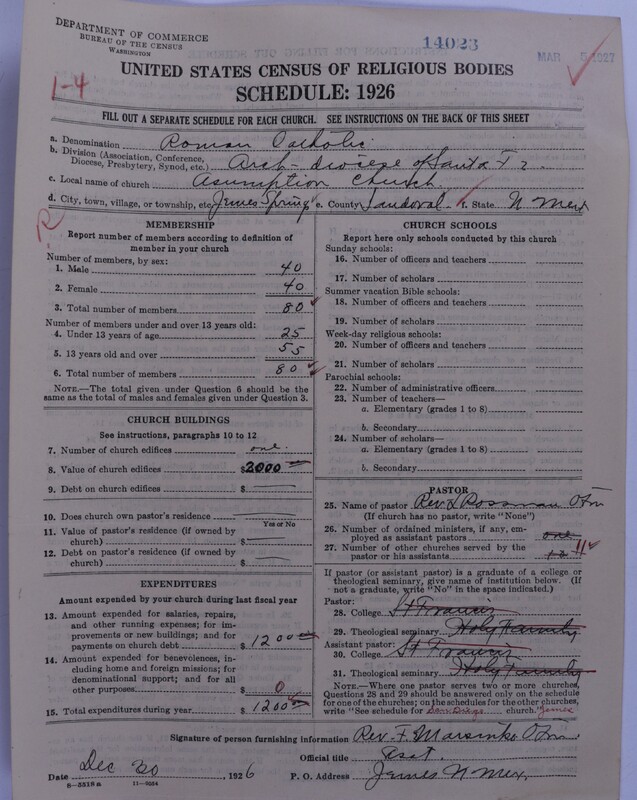 DEPARTMENT OF COMMERCE
BUREAU OF THE CENSUS
WASHINGTON
14023
MAR 5 1927
1-4
UNITED STATES CENSUS OF RELIGIOUS BODIES
SCHEDULE: 1926
FILL OUT A SEPARATE SCHEDULE FOR EACH CHURCH. SEE INSTRUCTIONS ON THE BACK OF THIS SHEET
a. Denomination Roman Catholic
b. Division (Association, Conference, Diocese, Presbytery, Synod, etc.) Arch-diocese of Santa Fe
c. Local name of church Asumption Church
d. City, town, village, or township, etc. Jemes Springs e. County Sandoval f. State N Mex
R
MEMBERSHIP
Report number of members according to definition of
member in your church
Number of members, by sex:
1. Male 40
2. Female 40
3. Total number of members 80
Number of members under and over 13 years old:
4. Under 13 years of age 25
5. 13 years old and over 55
6. Total number of members 80
NOTE.—The total given under Question 6 should be
same as the total of males and females given under Question 3.
CHURCH BUILDINGS
See instructions, paragraphs 10 to 12
7. Number of church edifices one
8. Value of church edifices $2000
9. Debt on church edifices $
10. Does church own pastor's residence
Yes or No
11. Value of pastor's residence (if owned by
church) $
12. Debt on pastor's residence (if owned by
church) $
EXPENDITURES
Amount expended by your church during last fiscal year
13. Amount expended for salaries, repairs,
and other running expenses; for im-
provements or new buildings; and for
payments on church debt $1200
14. Amount expended for benevolences, in-
cluding home and foreign missions; for
denominational support; and for all
other purposes $0
15. Total expenditures during year $1200
CHURCH SCHOOLS
Report here only schools conducted by this church
Sunday schools:
16. Number of officers and teachers
17. Number of scholars
Summer vacation Bible schools:
18. Number of officers and teachers
19. Number of scholars
Week-day religious schools:
20. Number of officers and teachers
21. Number of scholars
Parochial schools:
22. Number of administrative officers
23. Number of teachers—
a. Elementary (grades 1 to 8)
b. Secondary
24. Number of scholars—
a. Elementary (grades 1 to 8)
b. Secondary
PASTOR
25. Name of pastor Rev. Rossman Ofm
(If church has no pastor, write "None")
26. Number of ordained ministers, if any, em-
ployed as assistant pastors one
27. Number of other churches served by the
pastor or his assistants 12 11
If pastor (or assistant pastor) is a graduate of a college or
theological seminary, give name of institution below. (If
not a graduate, write "No" in the space indicated.)
Pastor:
28. College St Francis
29. Theological seminary Holy Family
Assistant pastor:
30. College St Francis
31. Theological seminary Holy Family
NOTE.—Where one pastor serves two or more churches,
Questions 28 and 29 should be answered only on the schedule
for one of the churches; on the schedules for the other churches,
write "See schedule for San Diego church." Jemes
Signature of person furnishing information Rev. F. Marsinko Ofm
Official title Asst.
Date Dec 20, 1926 P. O. Address Jemes N Mex.
8-5518a 11-9084